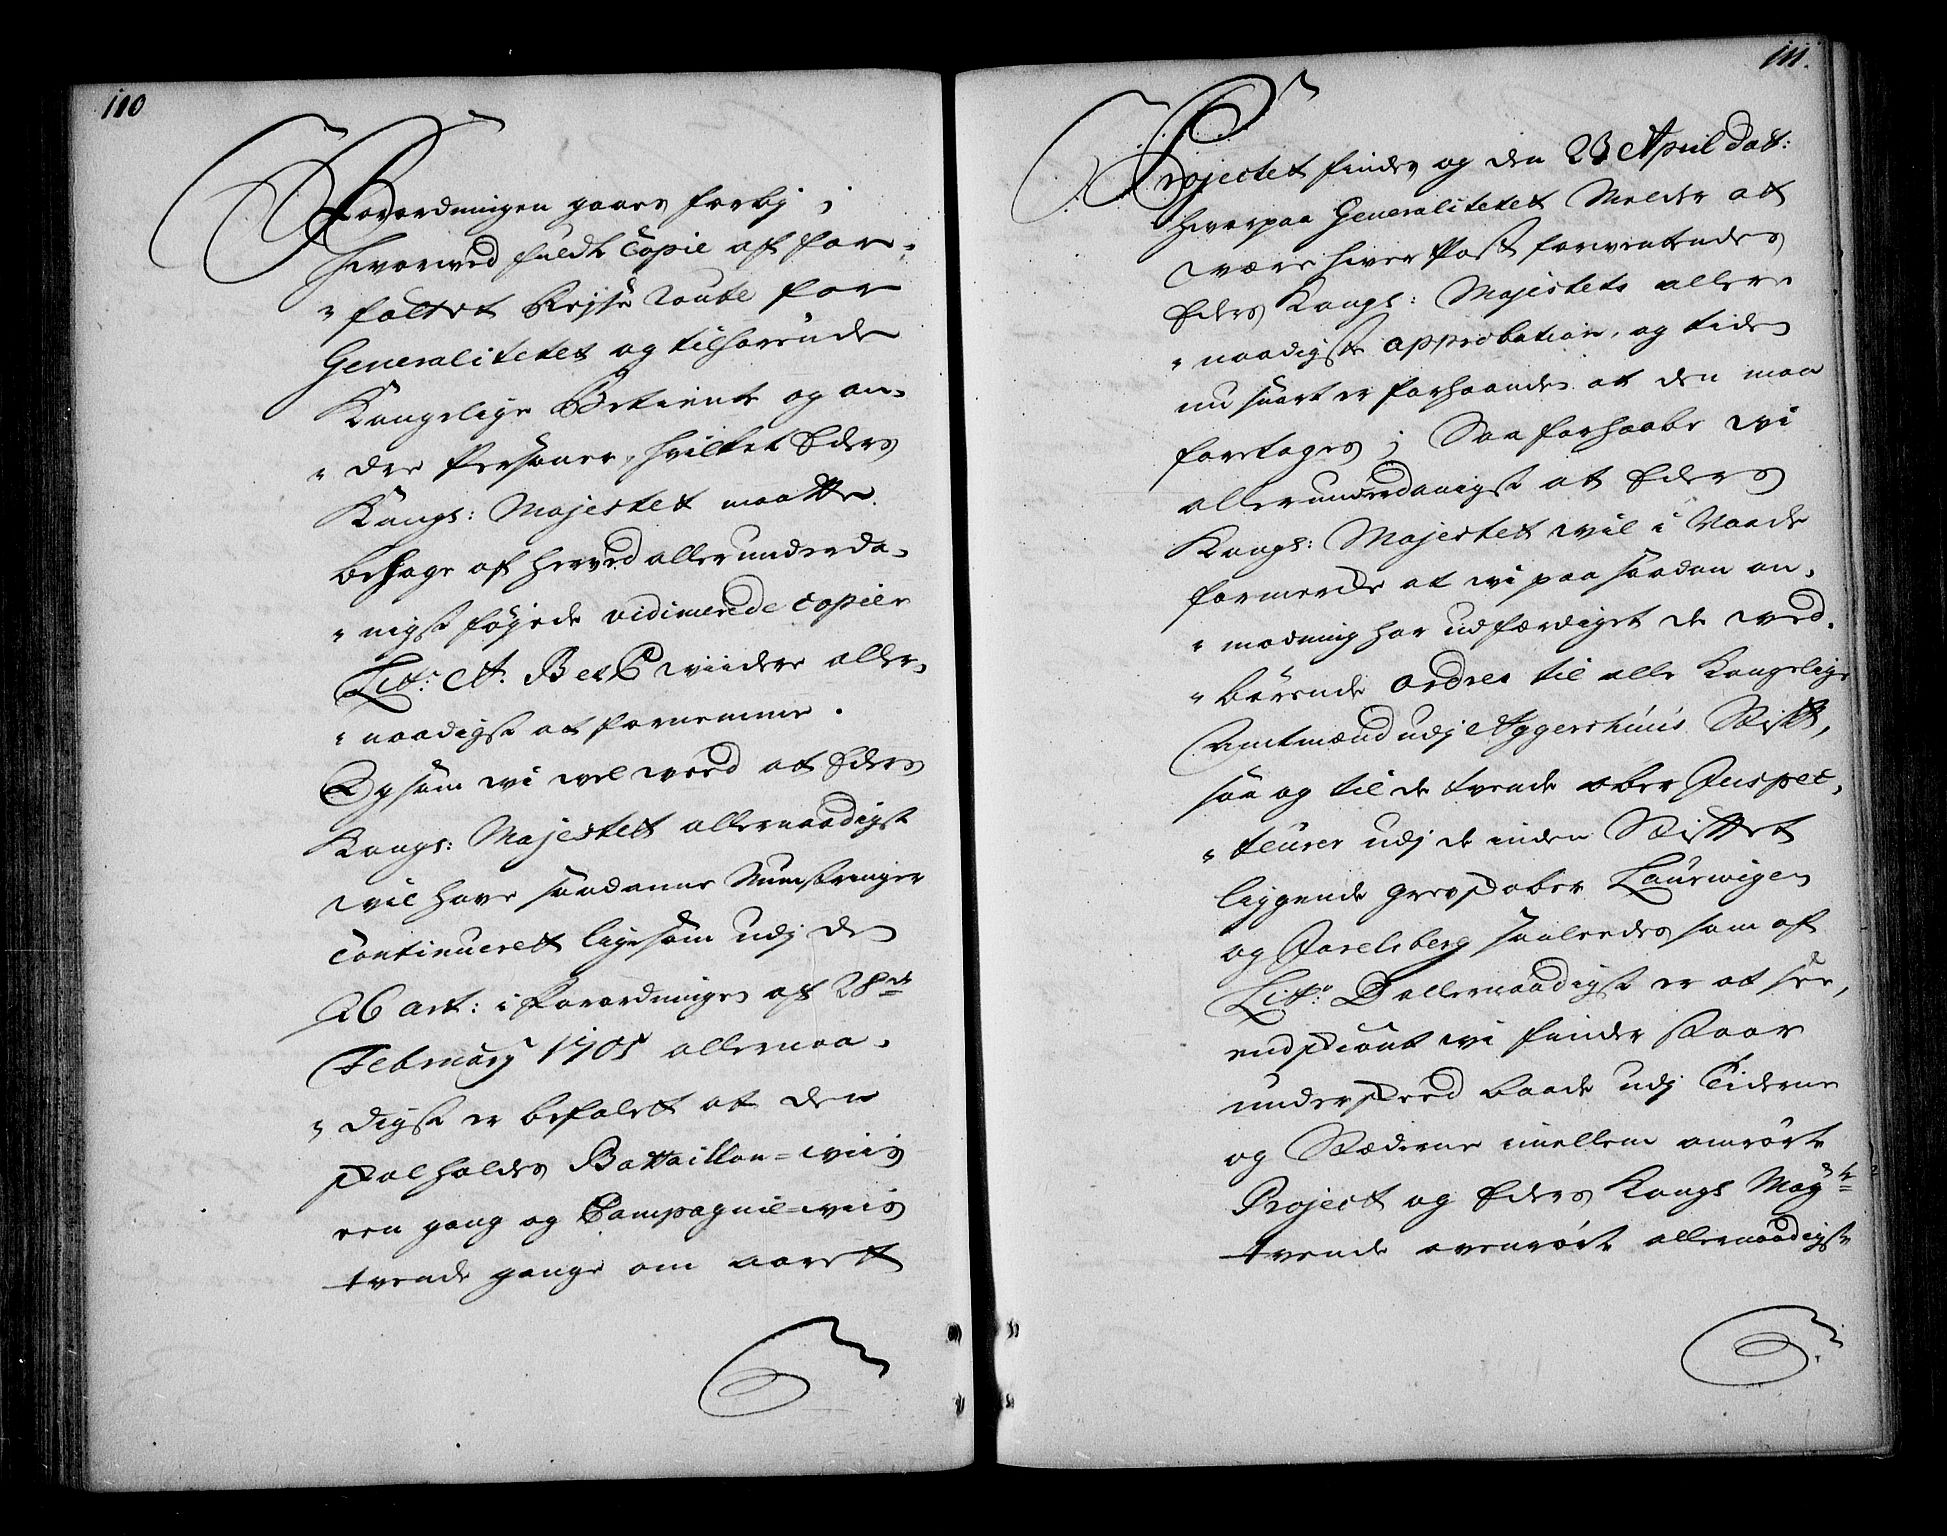 110
Forordningen gaaes forbj;
hvorved fuldte Copie af for¬
"fattet Rejse Route for
Generalitetet og tilhørende
Kongelige Betiente og an¬
"dre Personer, hvilket Eders
Kongs: Majestet maatte
behage af herved allerunderda¬
"nigst føyede vidimerede copier
Litr: A. B et C viidere aller¬
"naadigst at fornemme.
Og som wi vel weed at Eders
Kongs: Majestet allernaadigst
wil have saadanne Munstringer
Continuerett ligesom udj den
26 art: i Forordningen af 28de
February 1705 allernaa¬
"digst er befalett at den
skal holdes Battaillon=wiis
een gang og Compagnie=wiis
tvende gange om aarett
111.
Projectet findes og den 23 April dat:
hvorpaa Generalitetet Melder at
være hver Post forventendes
Eders Kongs: Majestets aller¬
"naadigste approbation, og tiden
nu snart er forhaanden at den maa
foretages; Saa forhaabe wi
allerunderdanigst at Eders
Kongs: Majestet wil i Naade
formercke at wi paa saadan an¬
"modning har udfærdiget de wed¬
"børende ordres til alle Kongelige
Amtmænd udj Aggershuus Stift,
saa og til de tvende ober Inspec¬
"teurer udj de inden Stiftet
liggende grevskaber Laurwigen
og Jarlsberg saaledes som af
Litr: D allernaadigst er at see,
endskiønt wi finder stoor
underskeed baade udj Tiderne
og Stæderne imellem omrørte
Project og Eders Kongs Mayts
tvende ovenrørte allernaadigste